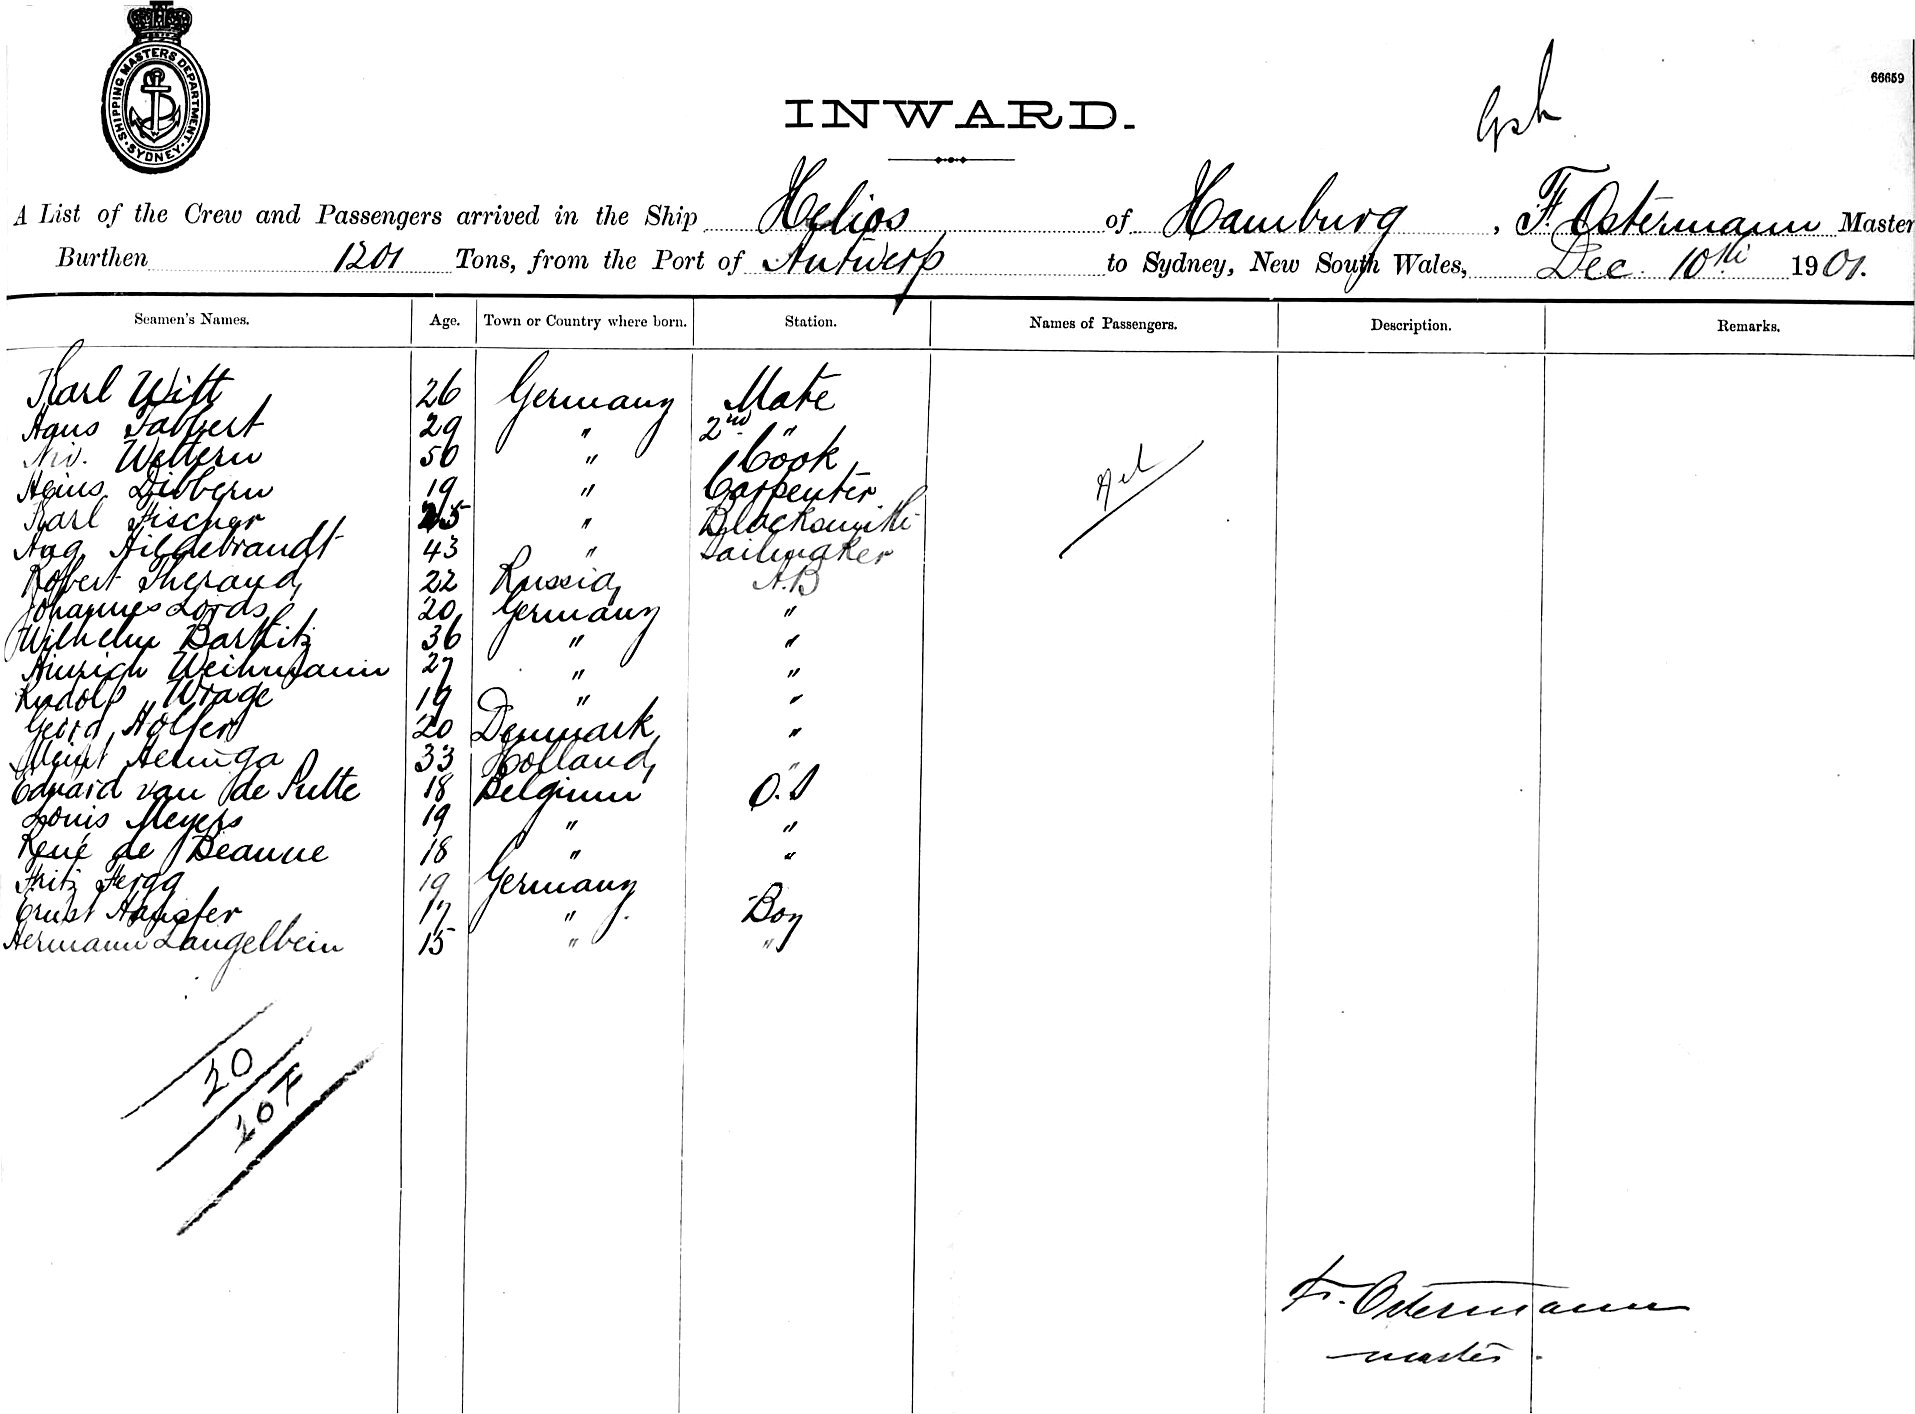 SHIPPING MASTERS DEPARTMENT
SYDNEY
66659
INWARD.
A List of the Crew and Passengers arrived in the Ship Helios of Hamburg, F. Ostermann Master
Burthen 1201 Tons, from the Port of Antwerp to Sydney, New South Wales, Dec. 10th 1901.
Seamen's Names. Age. Town or Country where born. Station. Names of Passengers. Description. Remarks.
Karl Witt 26 Germany Mate
Hans Tabbert 29 " 2nd "
Wettern 50 " Cook
Heins. Dibbern 19 " Carpenter
Karl Fischer 25 " Blacksmith
Aug. Hildebrandt 43 " Sailmaker
Robert 22 Russia A.B
Johannes Lords 20 Germany "
Wilhelm Bartlitz 36 " "
Hinrich Weihmann 27 " "
Rudolf Wrage 19 " "
Georg Holfer 20 Denmark "
Meint Heninga 33 Holland "
Eduard van de Putte 18 Belgium O.S
Louis Meyers 19 " "
René de Beaune 18 " "
Fritz Fergg 19 Germany
Ernst 17 " Boy
Hermann Langelbein 15 " "
20
20
Fr. Ostermann
master.